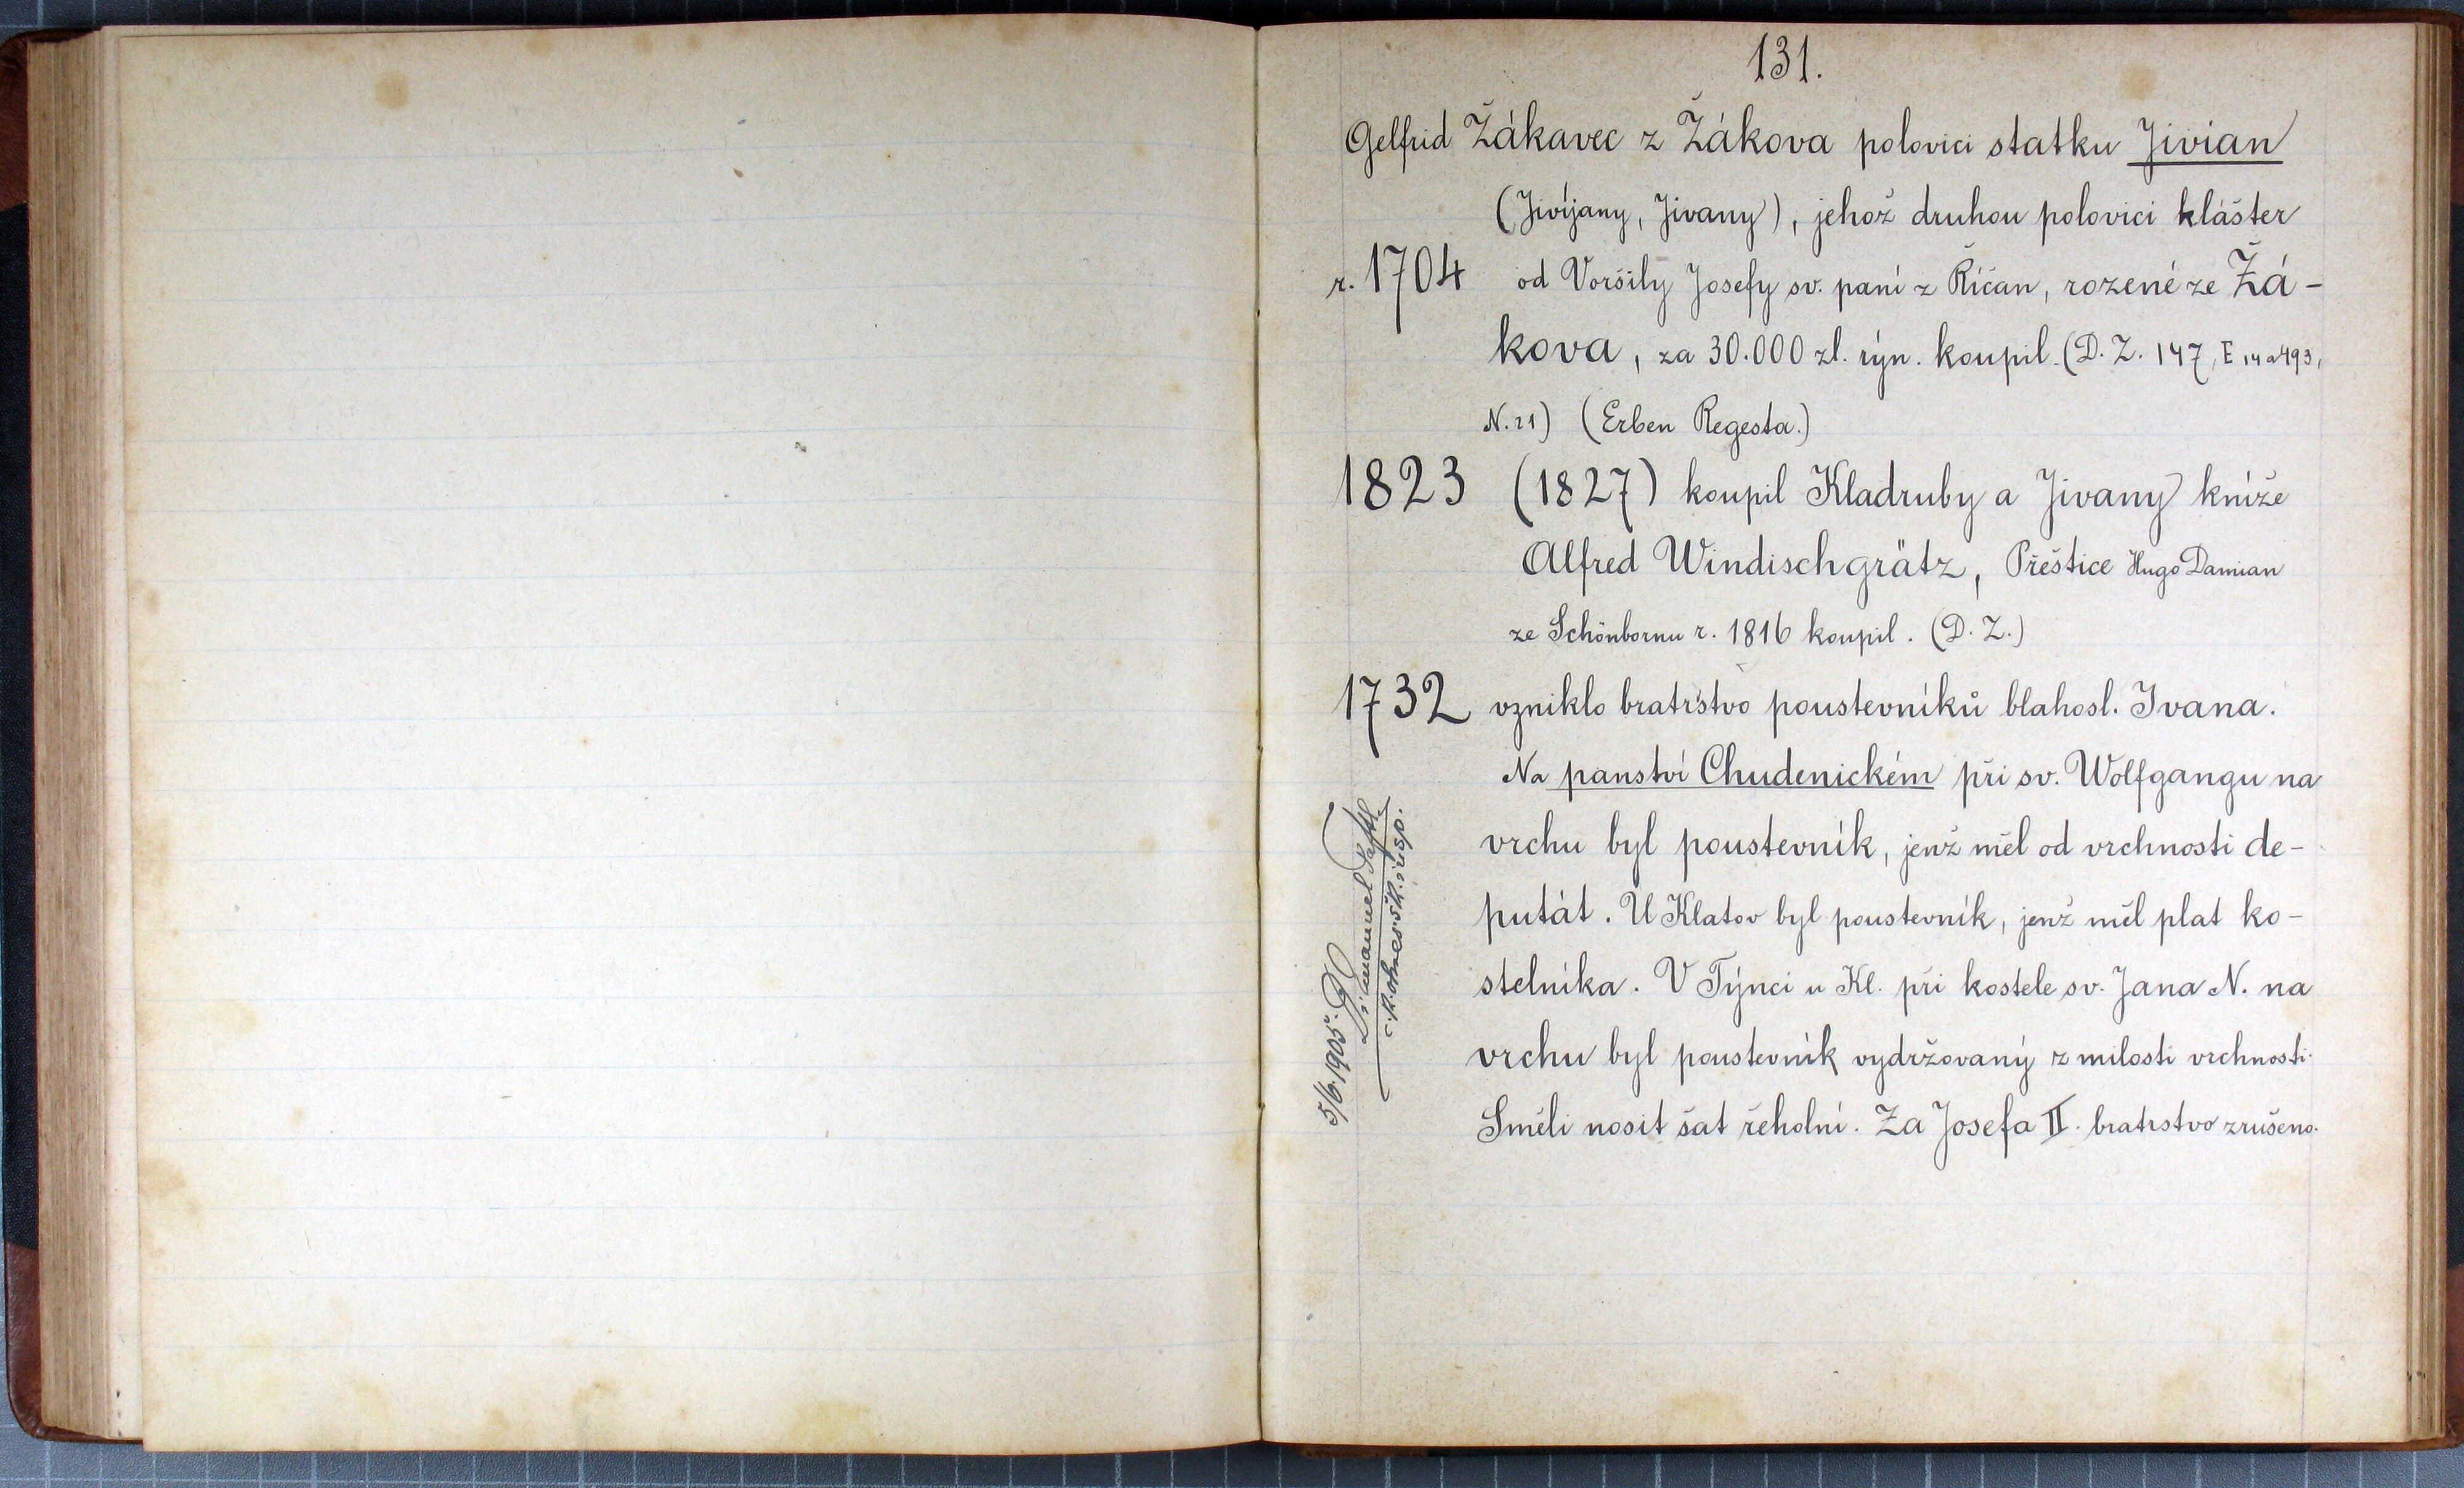 131.
Gelfrid Žákavec z Žákova polovici statku Jivian
(Jivíjany, Jivany), jehož druhou polovici klášter
r. 1704 od Voršily Josefy sv. paní z Říčan, rozené ze Žá-
kova, za 30.000 zl. rýn. koupil. (D. Z. 147, E 14 a 493,
N. 21) (Erben Regesta.)
1823 (1827) koupil Kladruby a Jivany kníže
Alfred Windischgrätz, Přeštice Hugo Damian
ze Schönbornu r. 1816 koupil. (D. Z.)
1732 vzniklo bratrstvo poustevníků blahosl. Ivana.
Na panství Chudenickém při sv. Wolfgangu na
vrchu byl poustevník, jenž měl od vrchnosti de-
putát. U Klatov byl poustevník, jenž měl plat ko-
stelníka. V Týnci u Kl. při kostele sv. Jana N. na
vrchu byl poustevník vydržovaný z milosti vrchnosti.
Směli nosit šat řeholní. Za Josefa II. bratrstvo zrušeno.
5/6. 1905.
c. k. okres. šk. insp.